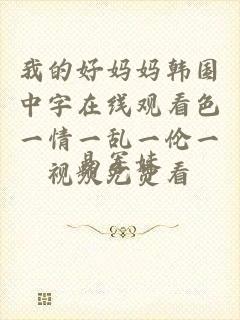 我的好妈妈韩国
中字在线观看色
一情一乱一伦一
视频免费看